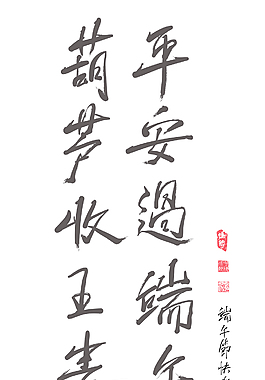 端午節快
平安過端午
葫芦收王